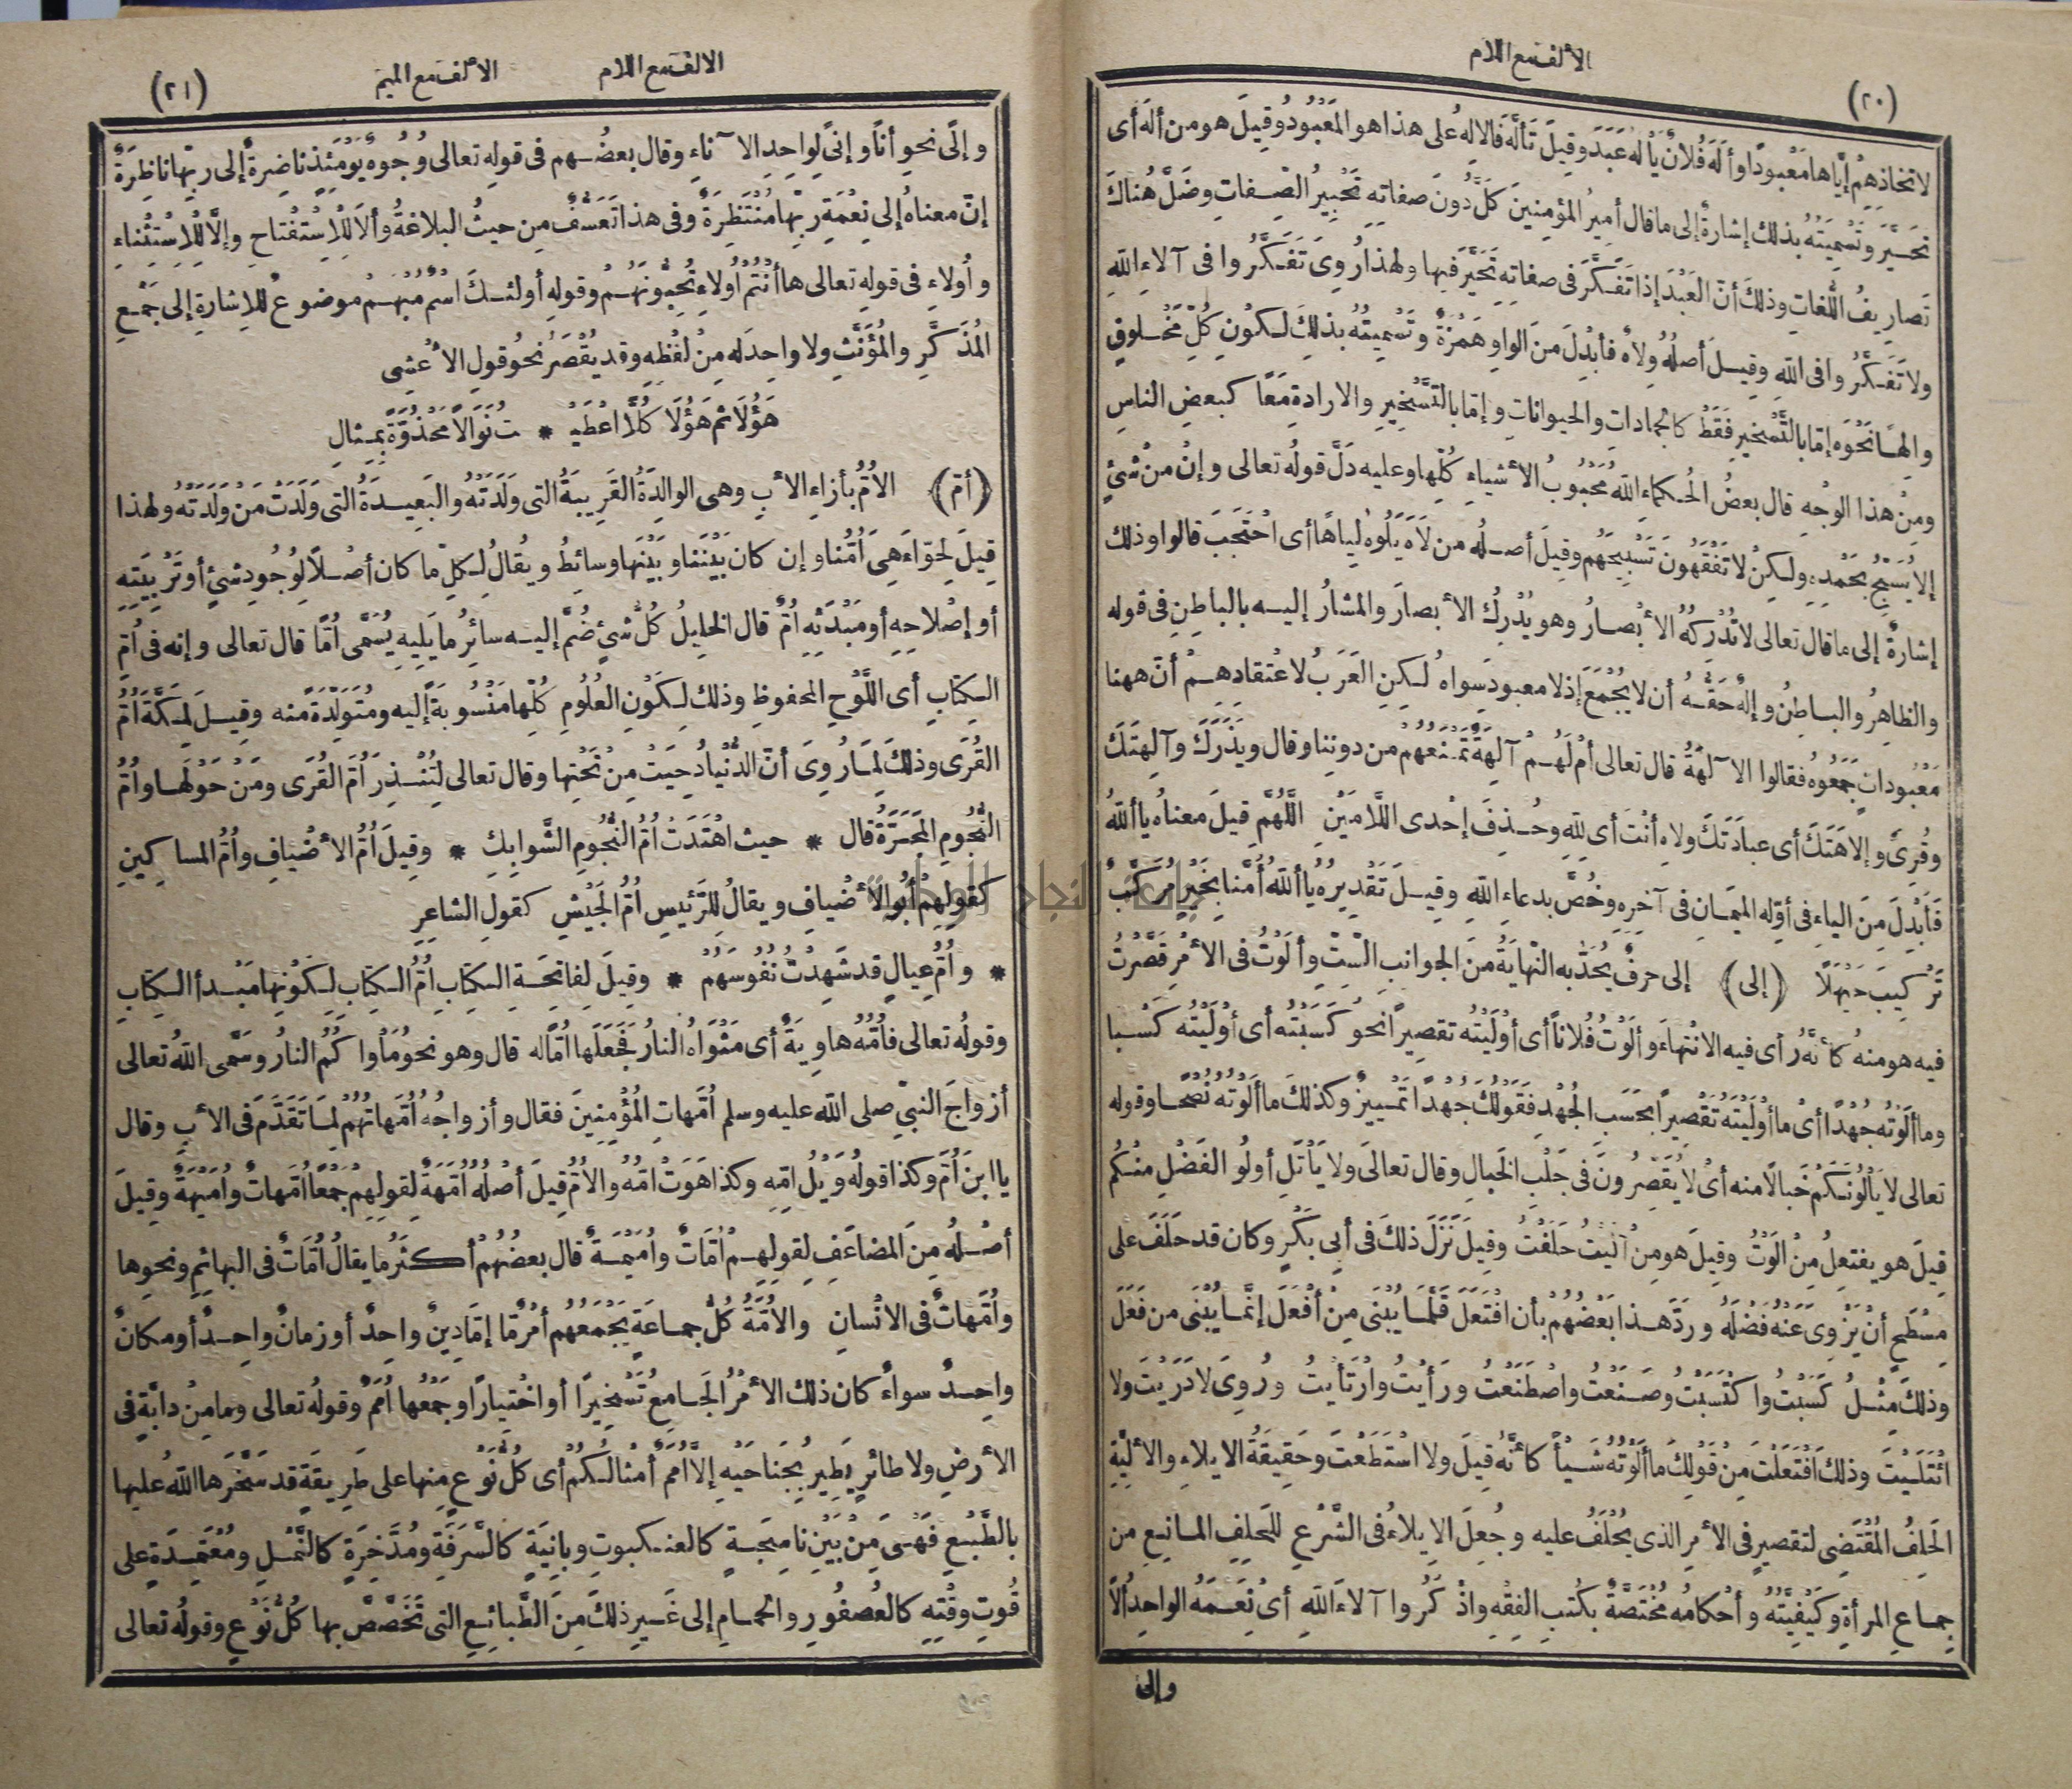 الألف مع اللام
(٢٠)
لاتخاذهم إياها معبودا وأله فلان يأله عبد وقيل تأله فالاله على هذا هو المعبود وقيل هو من أله أى
تحير وتسميته بذلك إشارة إلى ما قال أمير المؤمنين كل دون صفاته تحبير الصفات وضل هناك
تصاريف اللغات وذلك أن العبد إذا تفكر فى صفاته تحير فيها ولهذا روى تفكروا فى آلاء الله
ولا تفكروا فى الله وقيل أصله ولاه فأبدل من الواو همزة وتسميته بذلك لكون كل مخلوق
والها نحوه إما بالتسخير فقط كالجمادات والحيوانات وإما بالتسخير والارادة معا كبعض الناس
ومن هذا الوجه قال بعض الحكماء الله محبوب الأشياء كلها وعليه دل قوله تعالى وإن من شئ
إلا يسبح بحمده ولكن لا تفقهون تسبيحهم وقيل أصله من لاه يلوه لياها أى احتجب قالوا وذلك
إشارة إلى ما قال تعالى لا تدركه الأبصار وهو يدرك الأبصار والمشار إليه بالباطن فى قوله
والظاهر والباطن وإله حقه أن لا يجمع إذ لا معبود سواه لكن العرب لاعتقادهم أن ههنا
معبودات جمعوه فقالوا الآلهة قال تعالى أم لهم آلهة تمنعهم من دوننا وقال ويذرك وآلهتك
وقرئ وإلاهتك أى عبادتك ولاه أنت أى لله وحذف إحدى اللامين اللهم قيل معناه يا ألله
فأبدل من الياء فى أوله الميمان فى آخره وخص بدعاء الله وقيل تقديره يا ألله أمنا بخير مركب
تركيب حيهلا (إلى) إلى حرف يحد به النهاية من الجوانب الست وألوت فى الأمر قصرت
فيه هو منه كأنه رأى فيه الانتهاء وألوت فلانا أى أوليته تقصيرا نحو كسبته أى أوليته كسبا
وما ألوته جهدا أى ما أوليته تقصيرا بحسب الجهد فقولك جهدا تمييز وكذلك ما ألوته نصحا وقوله
تعالى لا يألونكم خبالا منه أى لا يقصرون فى جلب الخبال وقال تعالى ولا يأتل أولو الفضل منكم
قيل هو يفتعل من ألوت وقيل هو من آليت حلفت وقيل نزل ذلك فى أبى بكر وكان قد حلف على
مسطح أن يزوى عنه فضله ورد هذا بعضهم بأن افتعل قلما يبنى من أفعل إنما يبنى من فعل
وذلك مثل كسبت واكتسبت وصنعت واصطنعت ورأيت وارتأيت وروى لا دريت ولا
ائتليت وذلك افتعلت من قولك ما ألوته شيأ كأنه قيل ولا استطعت وحقيقة الايلاء والألية
الحلف المقتضى لتقصير فى الأمر الذى يحلف عليه وجعل الايلاء فى الشرع للحلف المانع من
جماع المرأة وكيفيته وأحكامه مختصة بكتب الفقه واذكروا آلاء الله أى نعمه الواحد ألا
وإلى
الالف مع اللام
الألف مع الميم
(٢١)
وإلى نحو أنا وإنى لواحد الآناء وقال بعضهم فى قوله تعالى وجوه يومئذ ناضرة إلى ربها ناظرة
إن معناه إلى نعمة ربها منتظرة وفى هذا تعسف من حيث البلاغة وألا للاستفتاح وإلا للاستثناء
وأولاء فى قوله تعالى ها أنتم أولاء تحبونهم وقوله أولئك اسم مبهم موضوع للاشارة إلى جمع
المذكر والمؤنث ولا واحد له من لفظه وقد يقصر نحو قول الأعشى
هؤلا ثم هؤلا كلا اعطيـ * ت نوالا محذوة بمثال
(أم) الأم بأزاء الأب وهى الوالدة القريبة التى ولدته والبعيدة التى ولدت من ولدته ولهذا
قيل لحواء هى أمنا وإن كان بيننا وبينها وسائط ويقال لكل ما كان أصلا لوجود شئ أو تربيته
أو إصلاحه أو مبدئه أم قال الخليل كل شئ ضم إليه سائر ما يليه يسمى أما قال تعالى وإنه فى أم
الكتاب أى اللوح المحفوظ وذلك لكون العلوم كلها منسوبة إليه ومتولدة منه وقيل لمكة أم
القرى وذلك لما روى أن الدنيا دحيت من تحتها وقال تعالى لتنذر أم القرى ومن حولها وأم
النجوم المجرة قال * حيث اهتدت أم النجوم الشوابك * وقيل أم الأضياف وأم المساكين
كقولهم أبو الأضياف ويقال للرئيس أم الجيش كقول الشاعر
* وأم عيال قد شهدت نفوسهم * وقيل لفاتحة الكتاب أم الكتاب لكونها مبدأ الكتاب
وقوله تعالى فأمه هاوية أى مثواه النار فجعلها أما له قال وهو نحو مأواكم النار وسمى الله تعالى
أزواج النبى صلى الله عليه وسلم أمهات المؤمنين فقال وأزواجه أمهاتهم لما تقدم فى الأب وقال
يا ابن أم وكذا قوله ويل امه وكذا هوت امه والأم قيل أصله أمهة لقولهم جمعا أمهات وأميهة وقيل
أصله من المضاعف لقولهم أمات وأميمة قال بعضهم أكثر ما يقال أمات فى البهائم ونحوها
وأمهات فى الانسان والأمة كل جماعة يجمعهم أمر ما إما دين واحد أو زمان واحد أو مكان
واحد سواء كان ذلك الأمر الجامع تسخيرا أو اختيارا وجمعها أمم وقوله تعالى وما من دابة فى
الأرض ولا طائر يطير بجناحيه إلا أمم أمثالكم أى كل نوع منها على طريقة قد سخرها الله عليها
بالطبع فهى من بين ناسجة كالعنكبوت وبانية كالسرفة ومدخرة كالنمل ومعتمدة على
قوت وقته كالعصفور والحمام إلى غير ذلك من الطبائع التى تخصص بها كل نوع وقوله تعالى